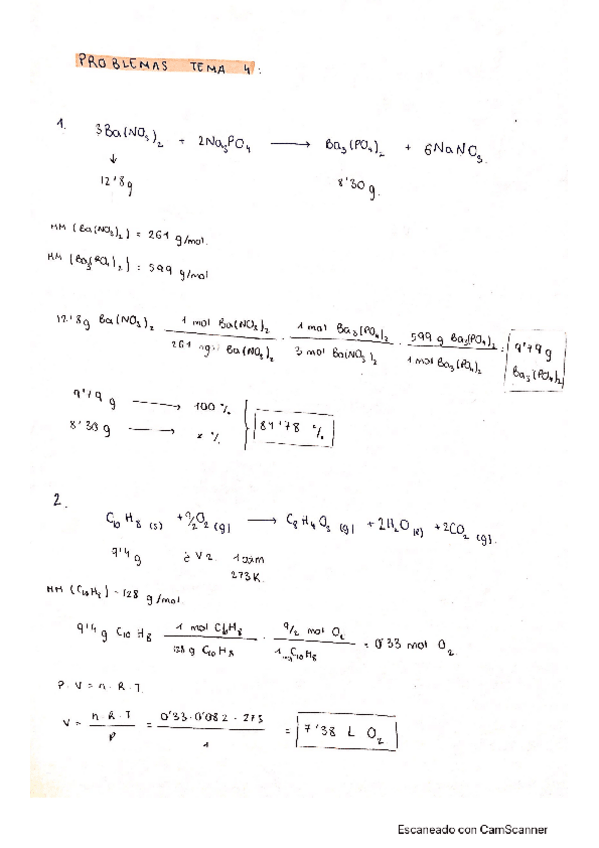 PROBLEMAS TEMA 4:
1. 3Ba(NO3)2 + 2Na3PO4 ⟶ Ba3(PO4)2 + 6NaNO3.
↓
12'8g 8'30 g.
MM (Ba(NO3)2) = 261 g/mol.
MM (Ba3(PO4)2) = 599 g/mol
12'8g Ba(NO3)2 1 mol Ba(NO3)2 · 1 mol Ba3(PO4)2 · 599 g Ba3(PO4)2 = 9'79 g
261 Ba(NO3)2 3 mol Ba(NO3)2 1 mol Ba3(PO4)2 Ba3(PO4)2
9'79 g ⟶ 100 %
8'30 g ⟶ x % 84'78 %
2.
C10H8 (s) + 9/2O2 (g) ⟶ C8H4O3 (g) + 2H2O (l) + 2CO2 (g).
9'4 g ¿V? 1 atm
273K.
MM (C10H8) = 128 g/mol.
9'4 g C10H8 1 mol C10H8 · 9/2 mol O2 = 0'33 mol O2
128 g C10H8 1 mol C10H8
P · V = n · R · T.
V = n · R · T = 0'33 · 0'082 · 273 = 7'38 L O2
P 1
Escaneado con CamScanner